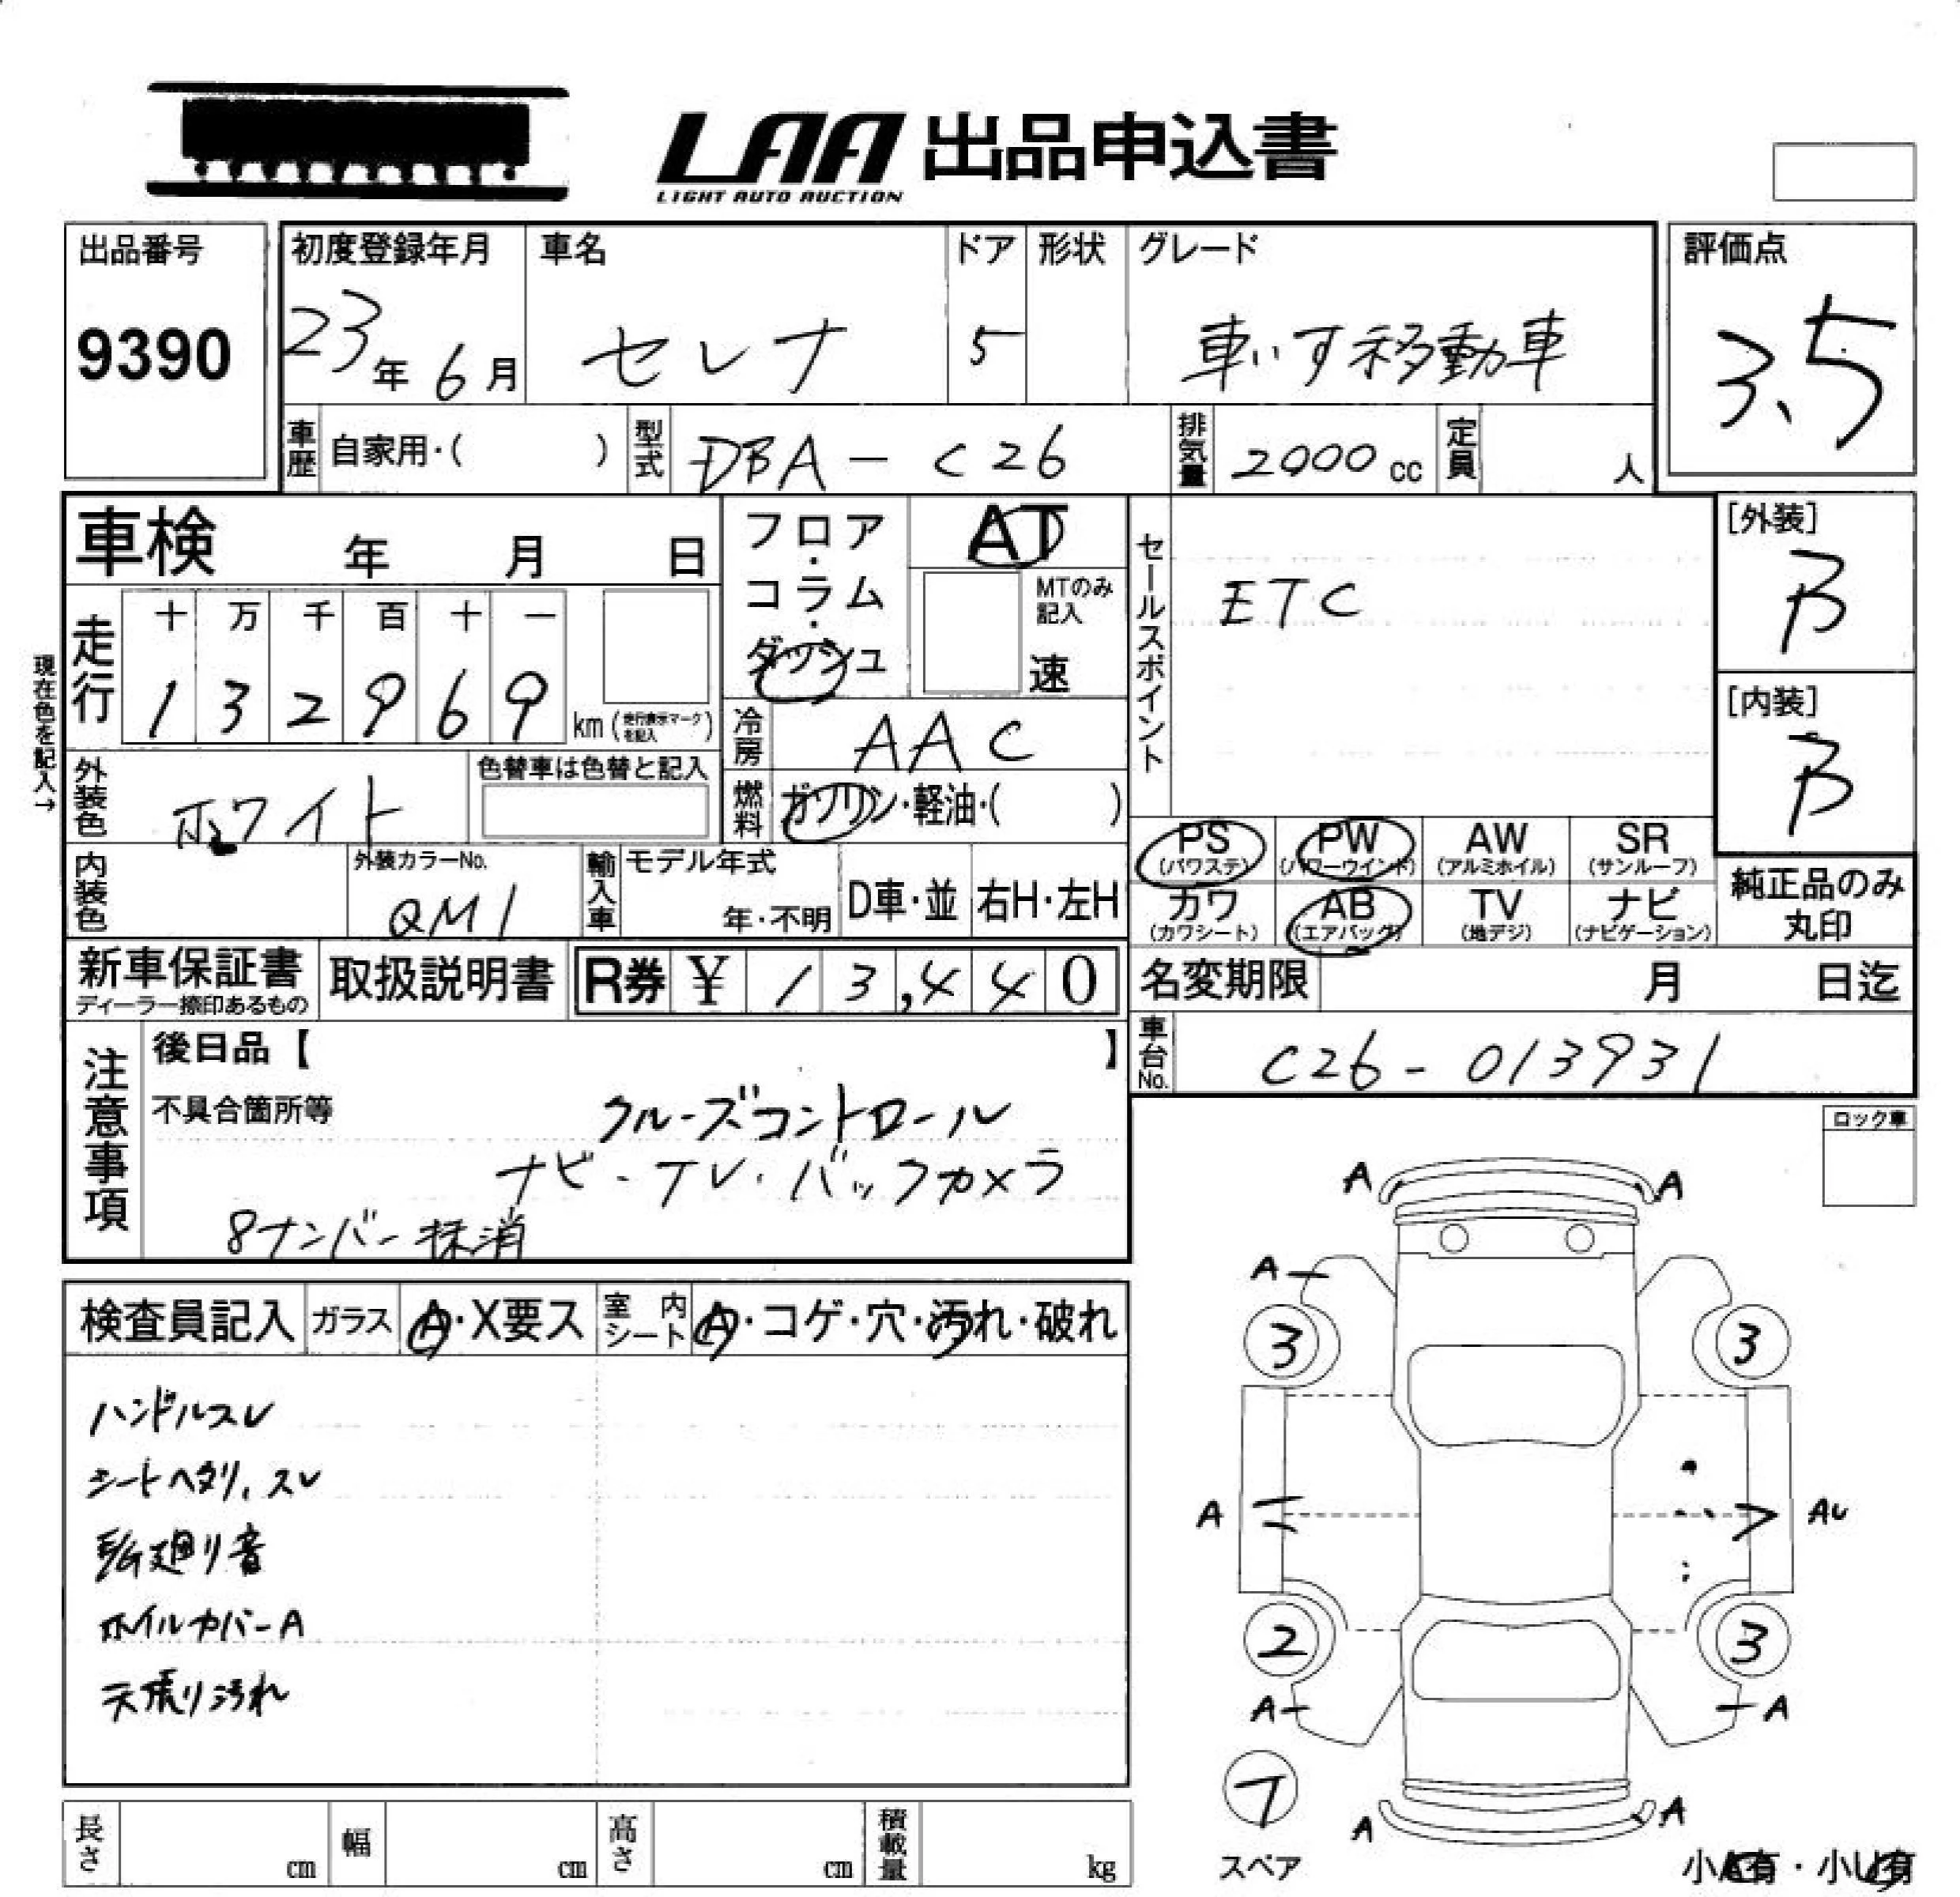 LAA 出品申込書
LIGHT AUTO AUCTION
出品番号
9390
初度登録年月
23年6月
車名
セレナ
ドア
5
形状
グレード
車いす移動車
評価点
3.5
車歴
自家用・( )
型式
DBA-C26
排気量
2000cc
定員
人
車検 年 月 日
現在色を記入→
走行
十 万 千 百 十 一
1 3 2 9 6 9
km(走行表示マークを記入)
フロア・コラム・ダッシュ
AT
MTのみ記入
速
冷房
AAC
燃料
ガソリン・軽油・( )
セールスポイント
ETC
[外装]
B
[内装]
B
外装色
ホワイト
色替車は色替と記入
内装色
外装カラーNo.
QM1
輸入車
モデル年式
年・不明
D車・並
右H・左H
PS (パワステ)
PW (パワーウインド)
AW (アルミホイル)
SR (サンルーフ)
カワ (カワシート)
AB (エアバッグ)
TV (地デジ)
ナビ (ナビゲーション)
純正品のみ丸印
新車保証書
ディーラー捺印あるもの
取扱説明書
R券 ¥ 13,440
名変期限 月 日迄
車台No.
C26-013931
注意事項
後日品【 】
不具合箇所等
クルーズコントロール
ナビ・TV・バックカメラ
8ナンバー抹消
ロック車
検査員記入
ガラス
A・X要ス
室内シート
A・コゲ・穴・汚れ・破れ
ハンドルスレ
シートヘタリ、スレ
廻り音
ホイルカバーA
天張り汚れ
A A
A
3 3
A AU
2 3
A A
T
スペア
A A
小A有・小U有
長さ cm
幅 cm
高さ cm
積載量 kg